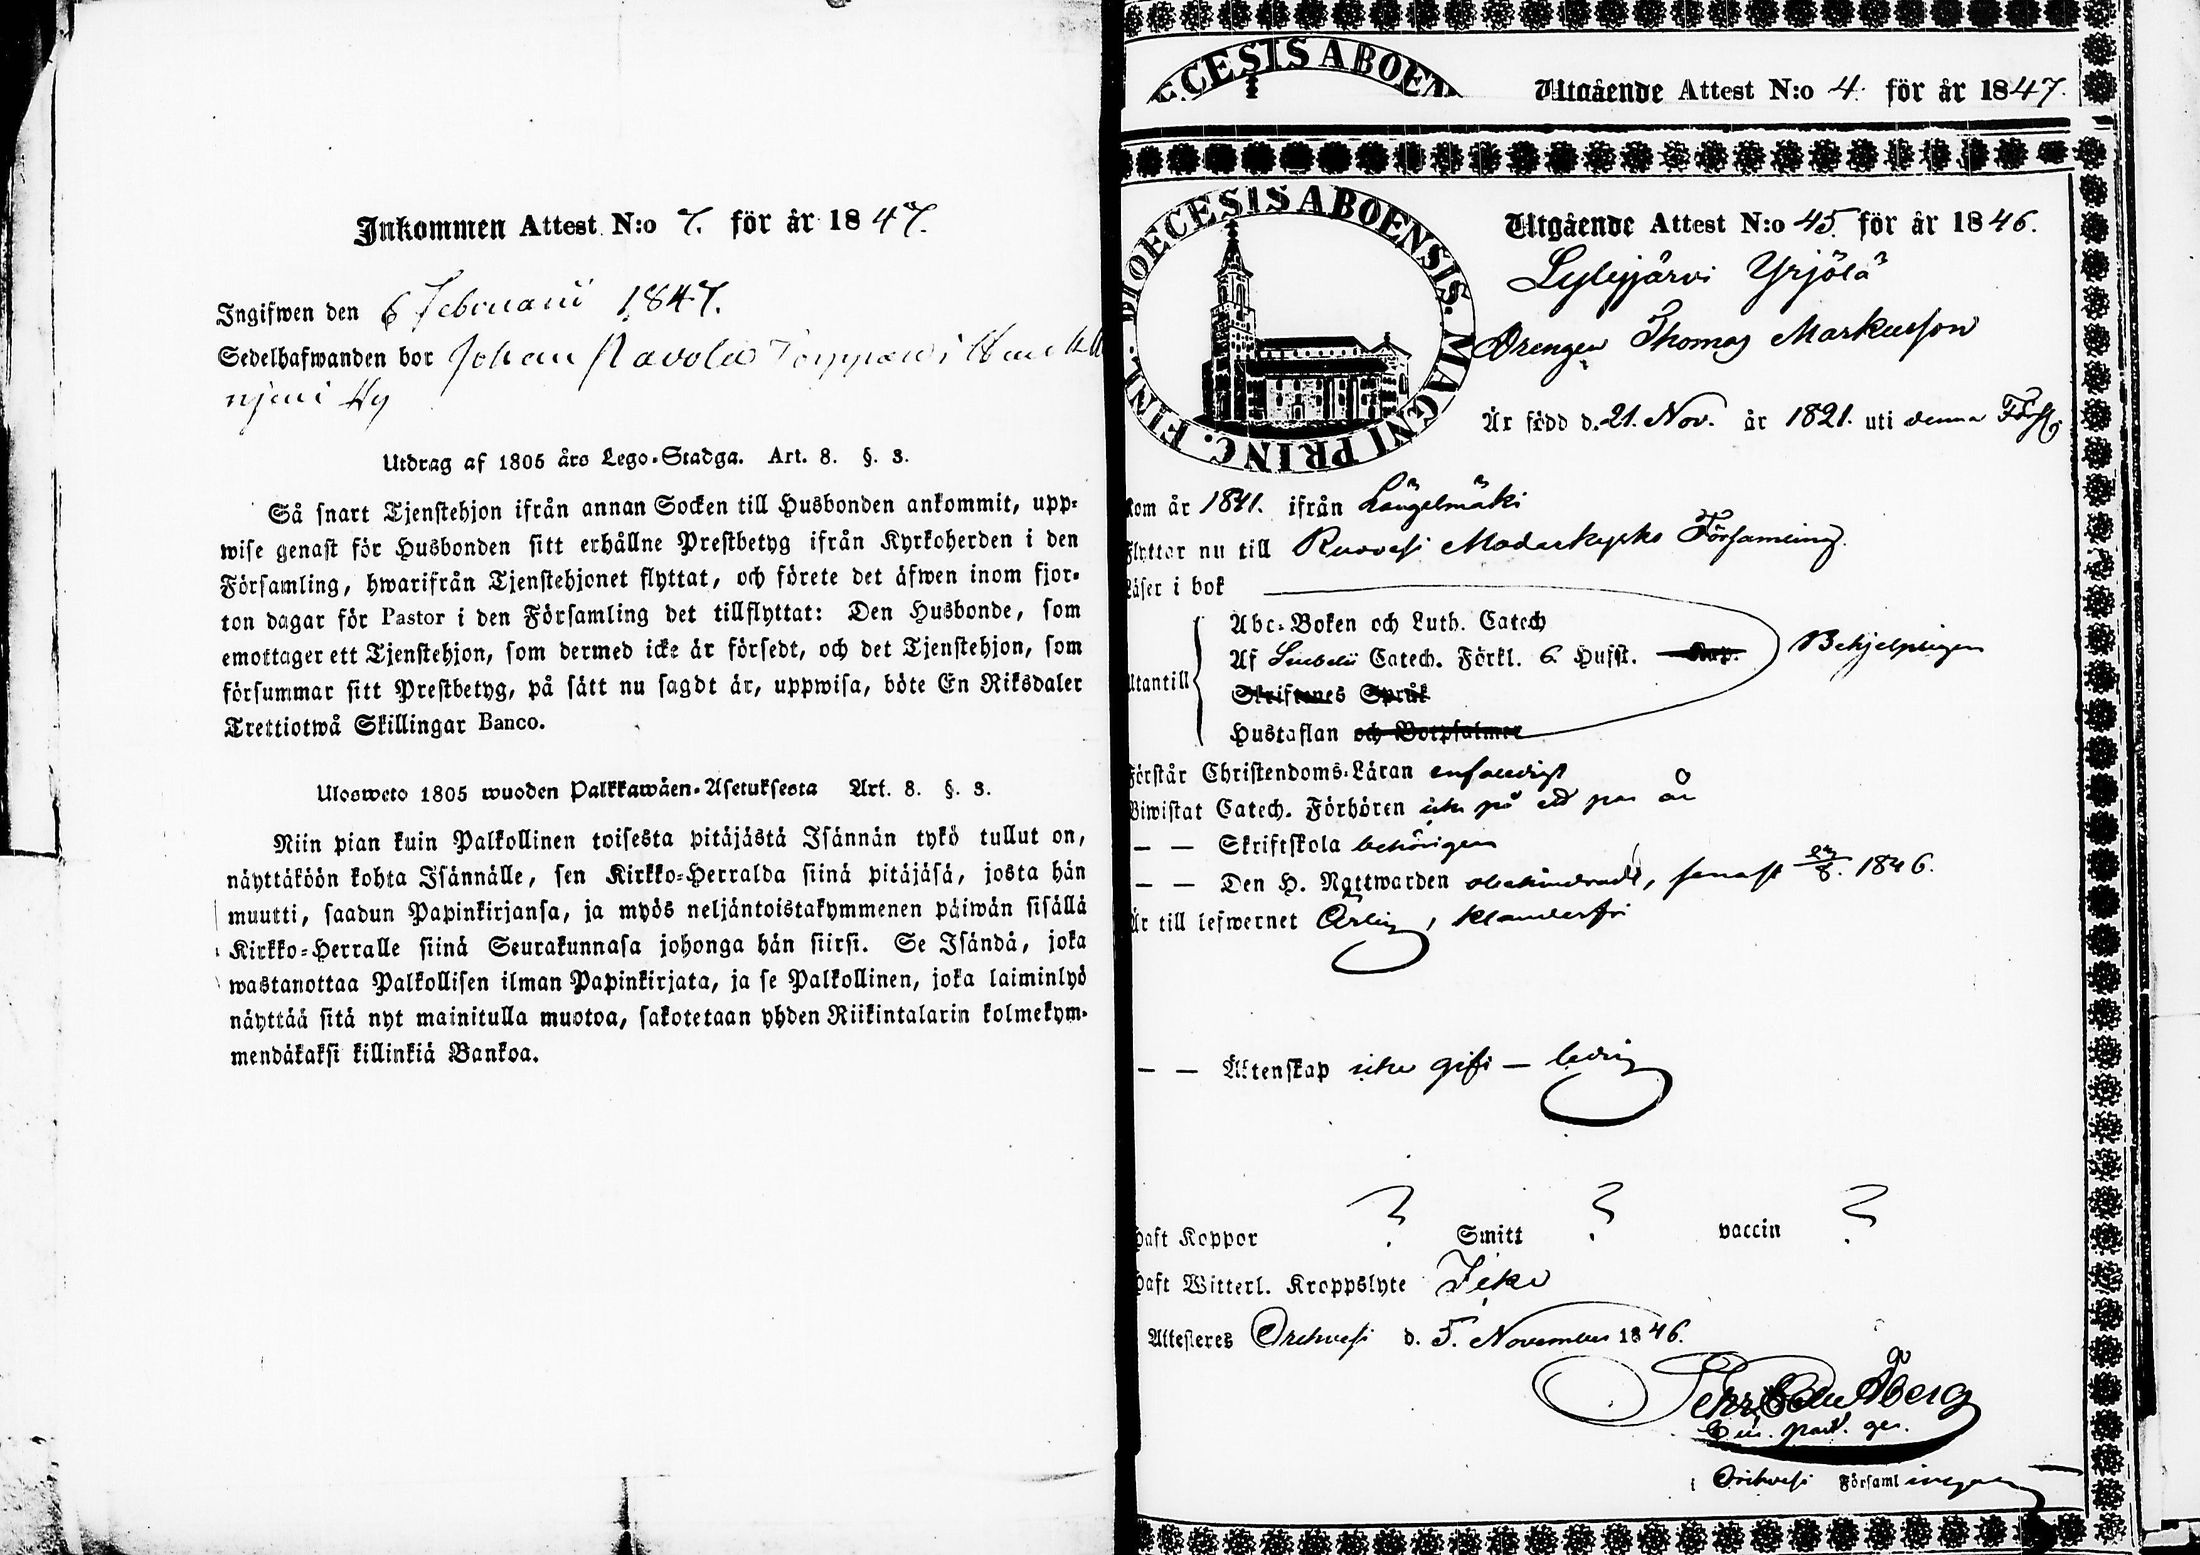 Inkommen Attest N:o 7. för år 1847.
Ingifwen den 6 Februarii 1847.
Sedelhafwanden bor Johan
by
Utdrag af 1805 års Lego-Stadga. Art. 8. §. 3.
Så snart Tjenstehjon ifrån annan Socken till Husbonden ankommit, upp-
wise genast för Husbonden sitt erhållne Prestbetyg ifrån Kyrkoherden i den
Församling, hwarifrån Tjenstehjonet flyttat, och förete det äfwen inom fjor-
ton dagar för Pastor i den Församling det tillflyttat: Den Husbonde, som
emottager ett Tjenstehjon, som dermed icke är försedt, och det Tjenstehjon, som
försummar sitt Prestbetyg, på sätt nu sagdt är, uppwisa, böte En Riksdaler
Trettiotwå Skillingar Banco.
Ulosweto 1805 wuoden Palkkawäen-Asetuksesta Art. 8. §. 3.
Niin pian kuin Palkollinen toisesta pitäjästä Isännän tykö tullut on,
näyttäköön kohta Isännälle, sen Kirkko-Herralda siinä pitäjäsä, josta hän
muutti, saadun Papinkirjansa, ja myös neljäntoistakymmenen päiwän sisällä
Kirkko-Herralle siinä Seurakunnasa johonga hän siirsi. Se Isändä, joka
wastanottaa Palkollisen ilman Papinkirjata, ja se Palkollinen, joka laiminlyö
näyttää sitä nyt mainitulla muotoa, sakotetaan yhden Riikintalarin kolmekym-
mendäkaksi killinkiä Bankoa.
ECESIS ABOEN
Utgående Attest N:o 4. för år 1847.
DIOECESIS ABOENSIS. MAGNI PRINC. FINL.
Utgående Attest N:o 45 för år 1846.
Lylyjärvi Yrjölä
Drengen Thomas Markusson
Är född d. 21. Nov. år 1821. uti denna Förs.
kom år 1841. ifrån Längelmäki
Flyttar nu till Ruovesi Moderkyrko Församling.
Läser i bok
Abc-Boken och Luth. Catech
Utantill Af Catech. Förkl. 6. Hufst. Kap. Behjelpligen
Skriftenes Språk
Hustaflan och Botpsalmer
Förstår Christendoms-Läran enfaldigt
Biwistat Catech. Förhören icke på ett par år
— — Skriftskola behörigen
— — Den H. Nattwarden obehindradt, senast 1846.
Är till lefwernet Ärlig, klanderfri
— — Äktenskap icke gift — ledig
haft Koppor ? Smitt ? vaccin ?
haft Witterl. Kroppslyte Icke
Attesteres Orihvesi d. 5. November 1846.
Åberg
i Orihvesi Församl